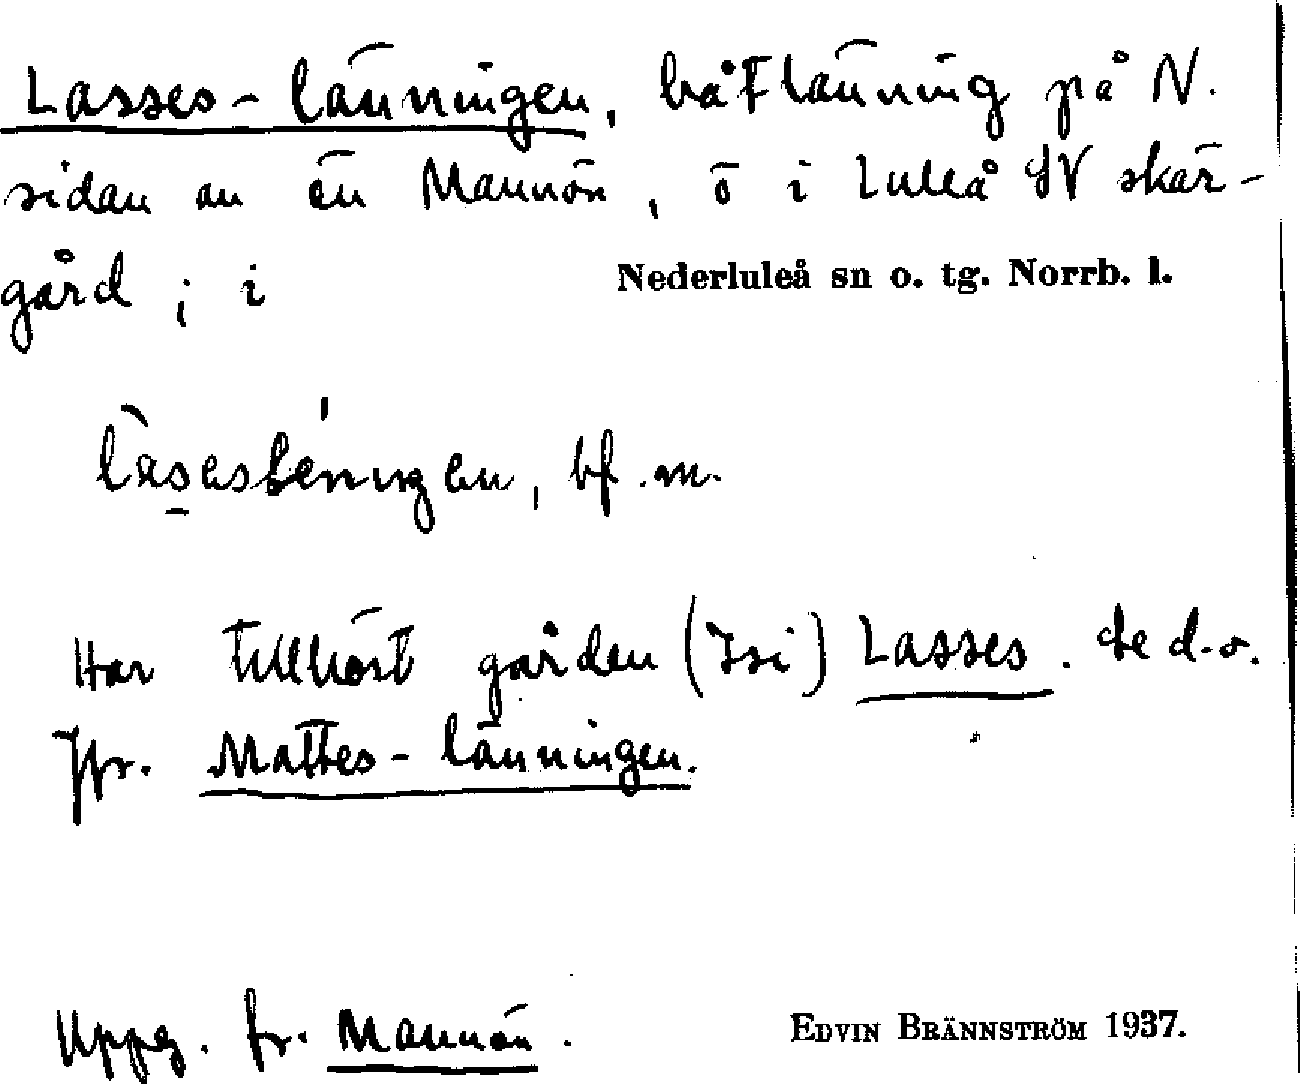 Lasses-länningen, båtlänning på N.
sidan av ön Mannön, ö i Luleå SV skär-
gård; i Nederluleå sn o. tg. Norrb. l.
bf. m.
Har tillhört gården (Isi) Lasses. Se d.o.
Jfr. Mattes-länningen.
Uppg. fr. Mannön. EDVIN BRÄNNSTRÖM 1937.